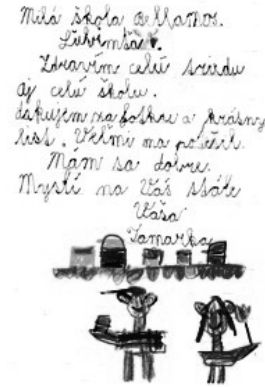 Milá škola Bellamos.
Ľúbim ťa.
Zdravím celú triedu
aj celú školu.
ďakujem za fotkre a krásny
list. Veľmi ma potešil.
Mám sa dobre.
Myslí na Vás stále
Vaša
Tamarka